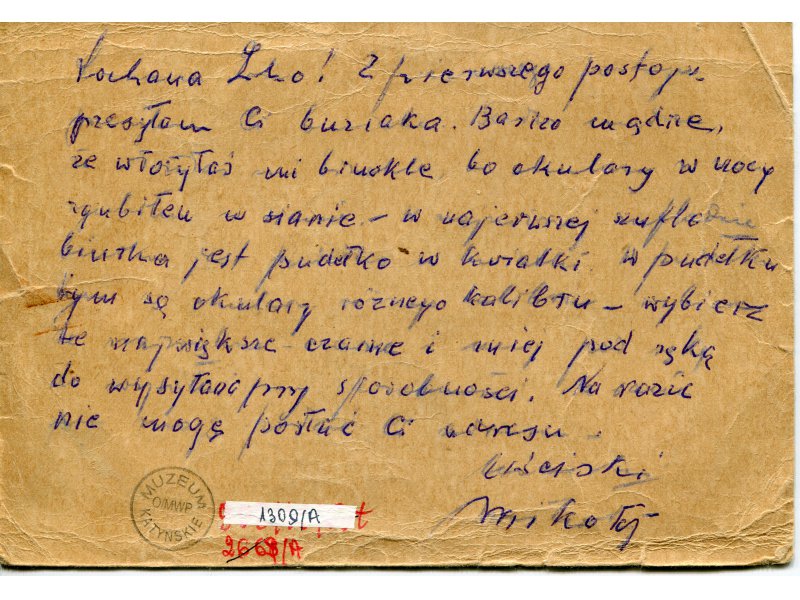 Kochana Izo! Z pierwszego postoju
przesyłam Ci buziaka. Bardzo mądrze,
że włożyłaś mi binokle, bo okulary w nocy
zgubiłem w sianie – w najpierwszej szufladzie
biurka jest pudełko w kwiatki. W pudełku
tym są okulary różnego kalibru – wybierz
te największe czarne i miej pod ręką
do wysyłania przy sposobności. Na razie
nie mogę posłać Ci adresu.
Uściski
Mikołaj
MUZEUM
O/MWP
KATYŃSKIE
1309/A
2668/A